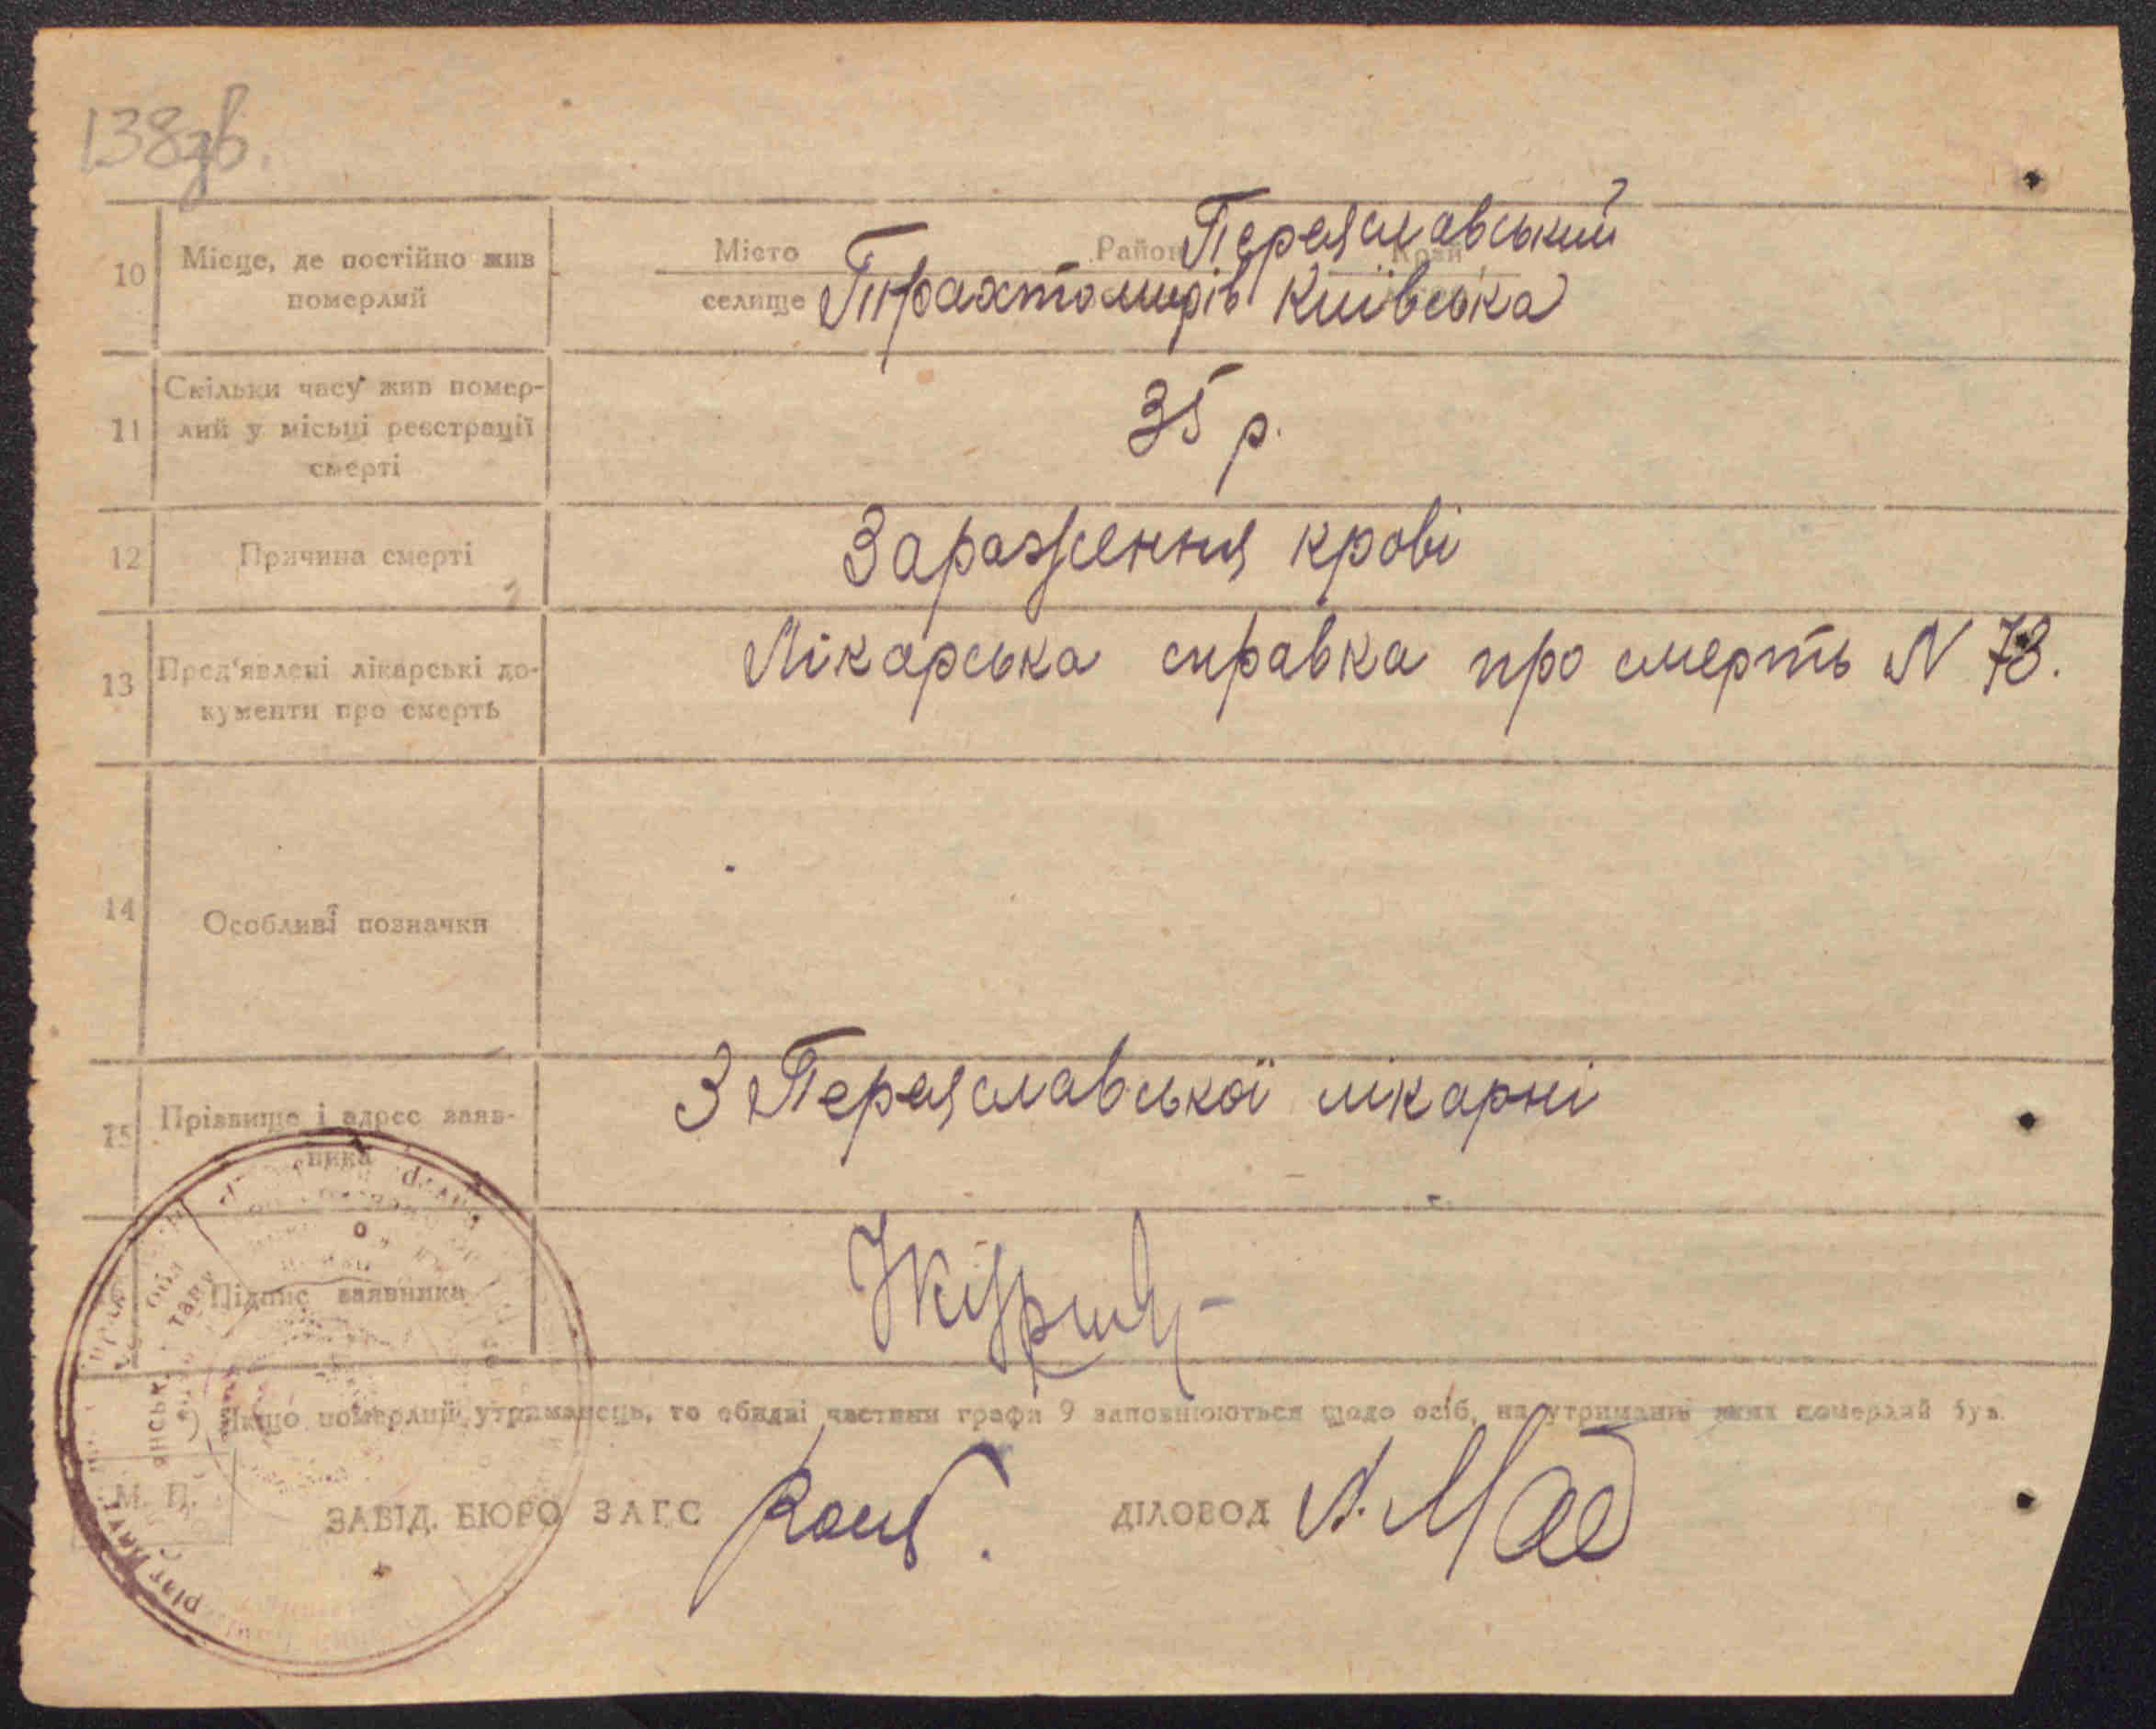 138зв.
10 Місце, де постійно жив померлий
Місто Район Переяславський Край
селище Трахтомирів Київська
11 Скільки часу жив помер-
лий у місьці реєстрації
смерті
35 р.
12 Причина смерті Зараження крові
13 Пред'явлені лікарські до-
кументи про смерть
Лікарська справка про смерть N 73.
14 Особливі позначки
15 Прізвище і адрес заяв-
ника
З Переяславської лікарні
Підпис заявника
) Якщо померлий утриманець, то обидві частини графи 9 заповнюються щодо осіб, на утриманні яких померлий був.
М. П.
ЗАВІД. БЮРО ЗАГС ДІЛОВОД